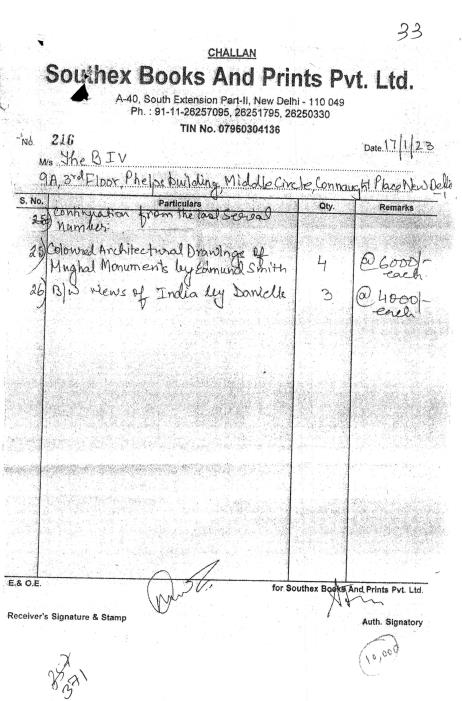 33
CHALLAN
Southex Books And Prints Pvt. Ltd.
A-40, South Extension Part-Ii, New Delhi - 110 049
Ph. : 91-11-26257095, 26251795, 26250330
TIN No. 07960304136
No. 216
Date 17/1/23
M/s The B I V
9A, 3rd Floor, Phelps Building, Middle Circle, Connaught Place New Delhi
S. No. Particulars Qty. Remarks
Continuation from the last Sereal
Number:
25) Coloured Architectural Drawings of
Mughal Monuments by Edmund Smith 4 @ 6000/- each
26) B/W views of India by Danielle 3 @ 4000/- each
E.& O.E.
for Southex Books And Prints Pvt. Ltd.
Receiver's Signature & Stamp
Auth. Signatory
10,000
371